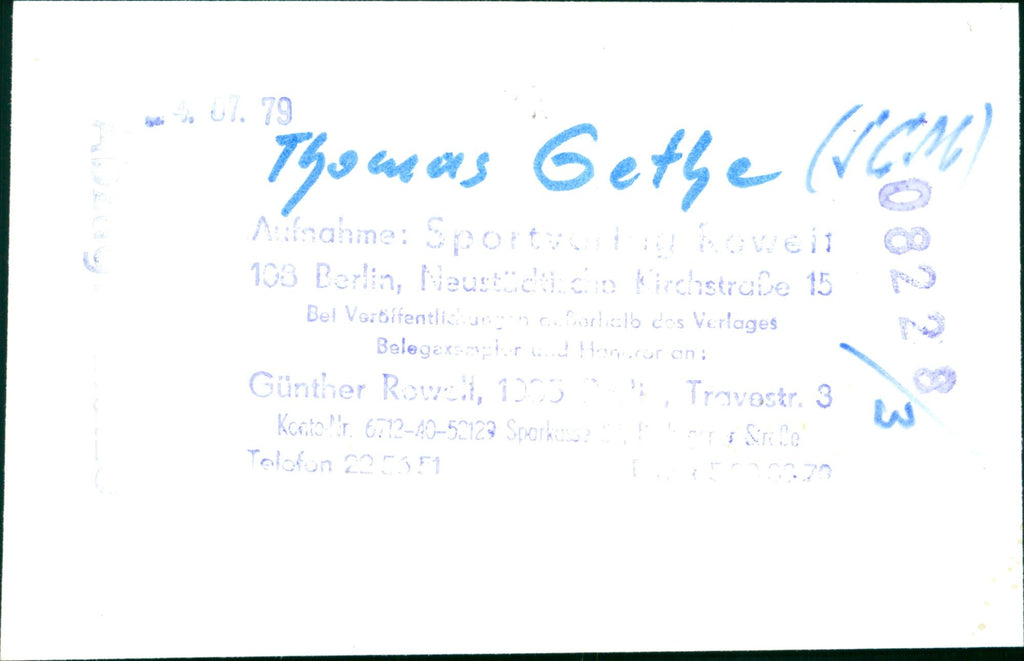 4. 07. 79
Thomas Gethe (SCM)
Aufnahme: Sportverlag Rowell
108 Berlin, Neustädtische Kirchstraße 15
Bei Veröffentlichungen außerhalb des Verlages
Belegexemplar und Honorar an:
Günther Rowell, 1035 Travestr. 3
Konto-Nr. 6712-40-52129 Sparkasse Straße
Telefon 22 56 51
08228
3